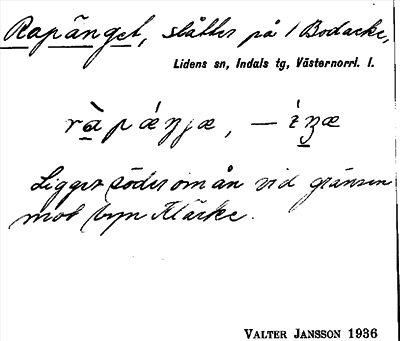 Rapänget, slåtter på / Bodacke,
Lidens sn, Indals tg, Västernorrl. l.
ràpǽŋjæ, — íŋæ
Ligger söder om ån vid gränsen
mot byn Kläcke.
VALTER JANSSON 1936